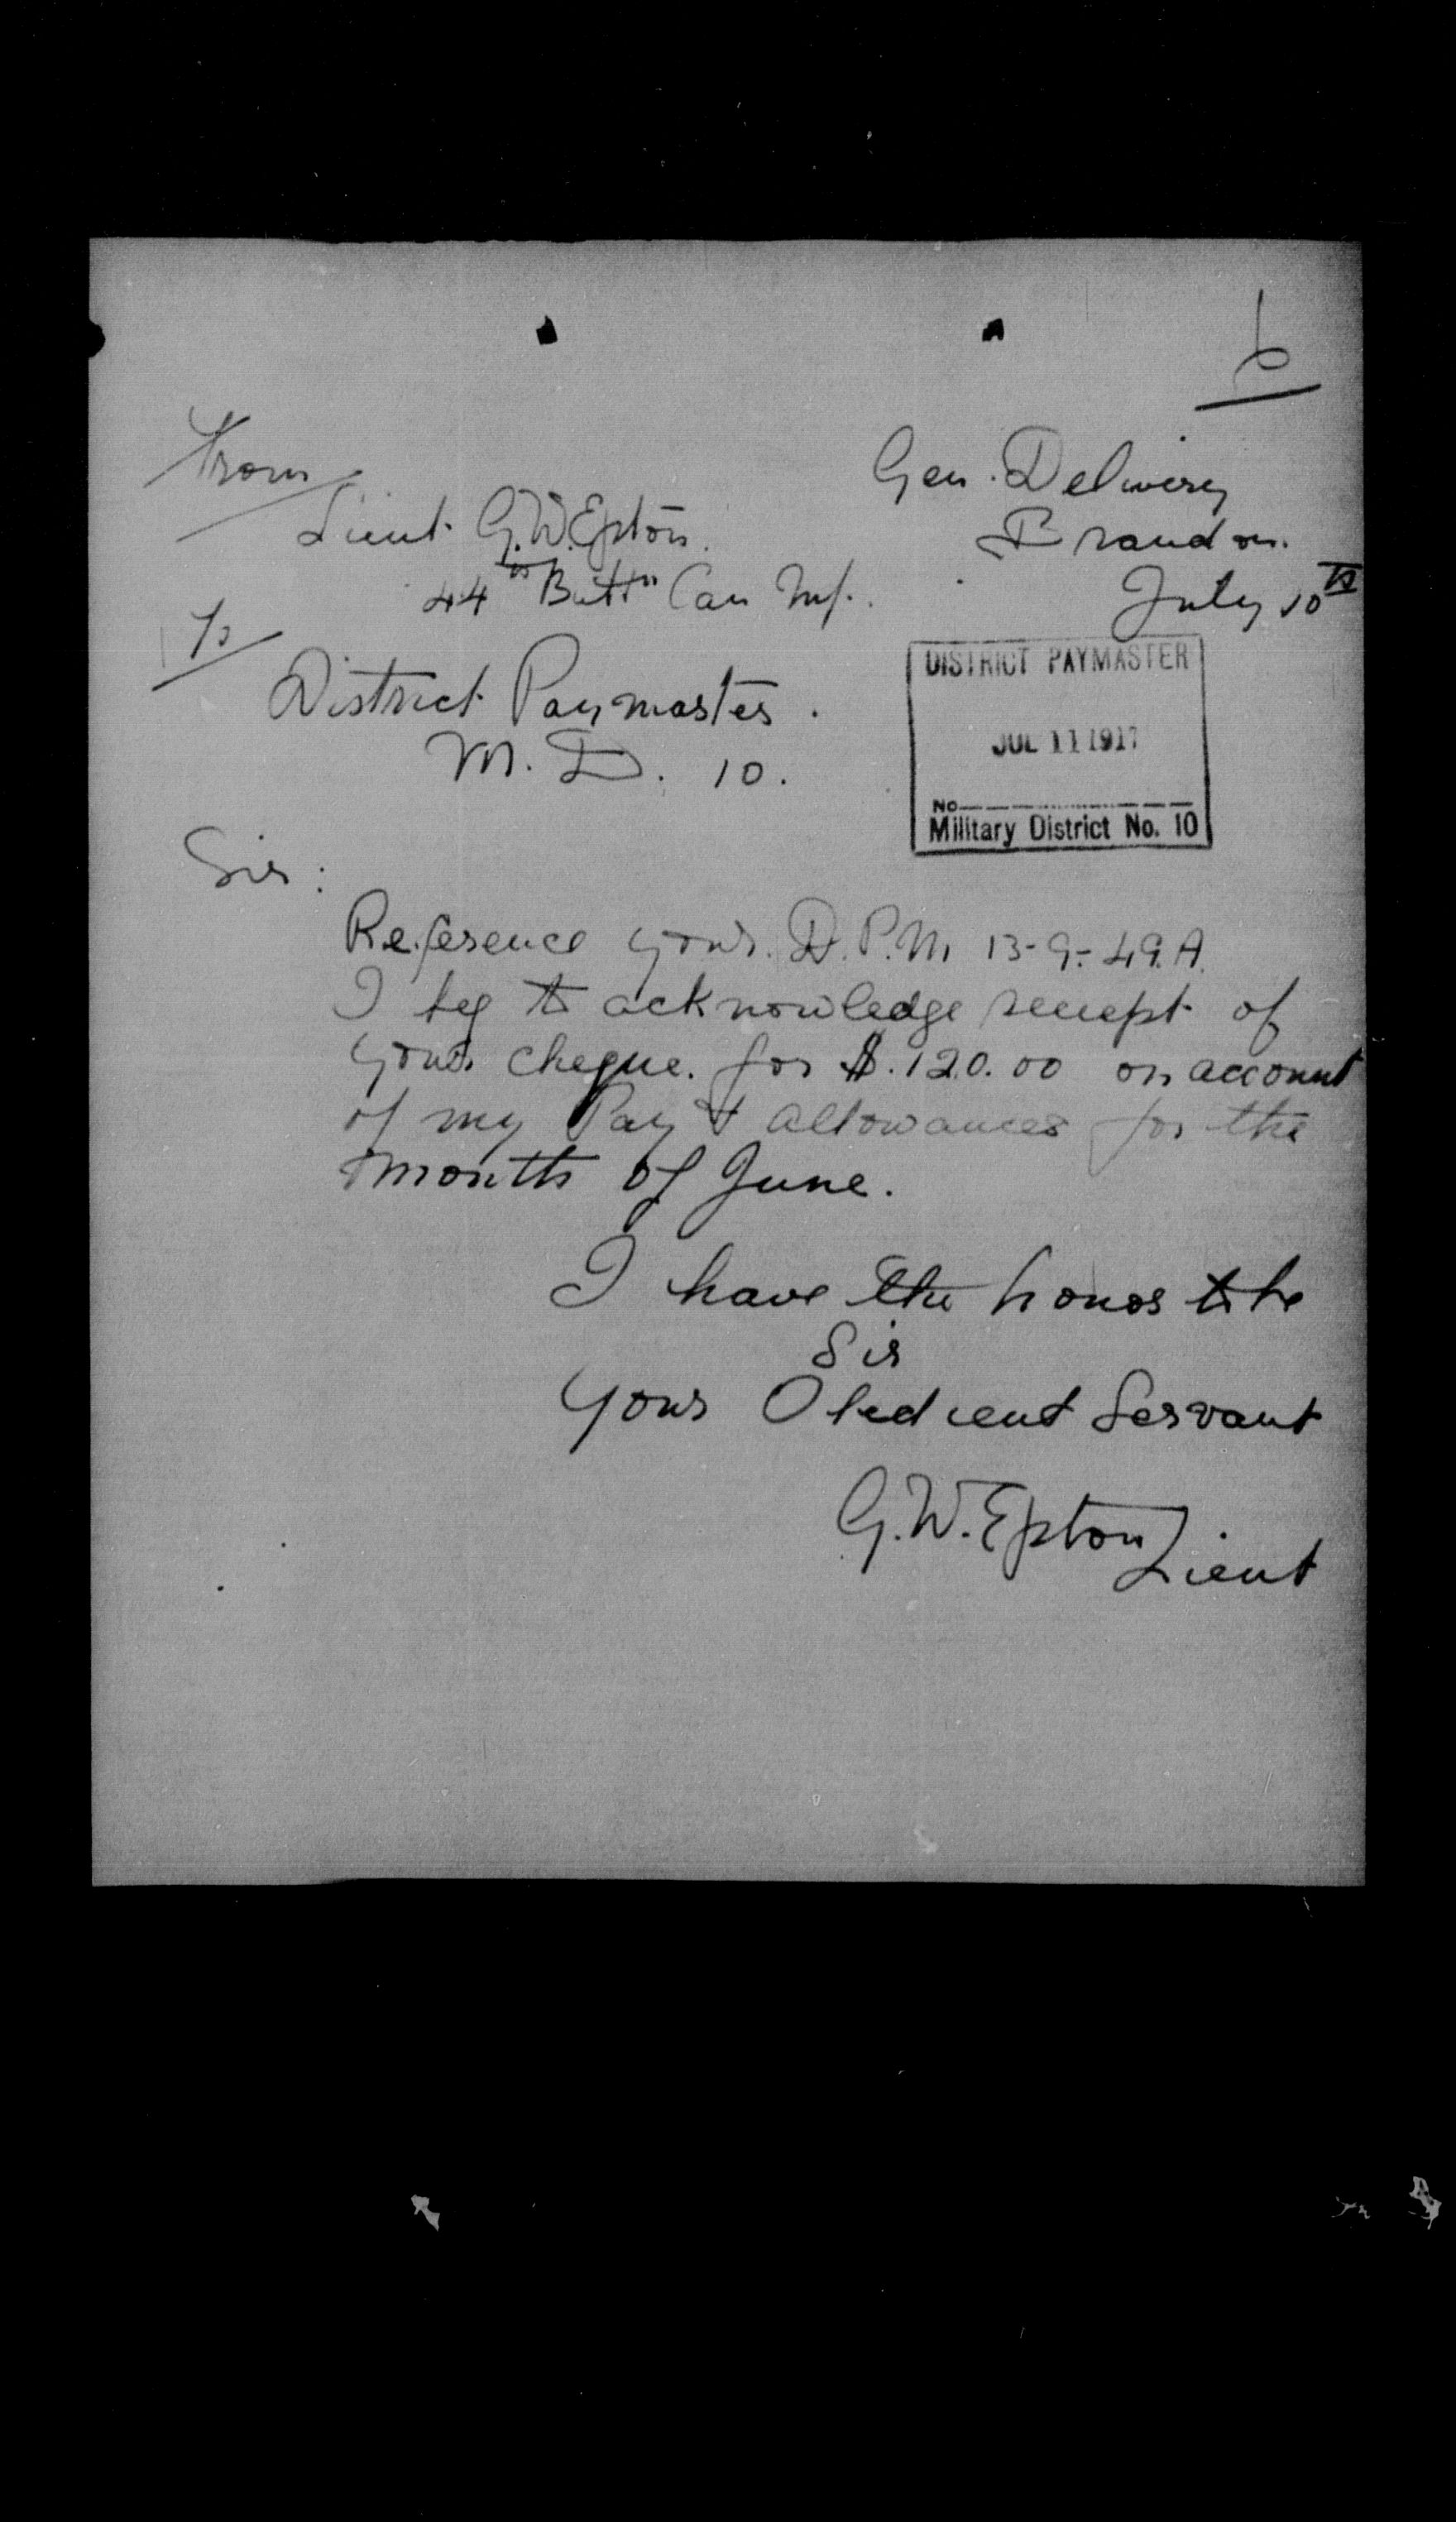 6
From
Gen. Delivery
Lieut. G.W. Epton.
Brandon.
44th Batt'n Can Inf.
July 10th
To
DISTRICT PAYMASTER
JUL 11 1917
No
Military District No. 10
District Paymaster.
M. D. 10.
Sir:
Reference your. D.P.M 13-9-49.A.
I beg to acknowledge receipt of
your cheque. for $.120.00 on account
of my Pay & allowances for the
month of June.
I have the honor to be
Sir
Your Obedient Servant
G.W. Epton Lieut